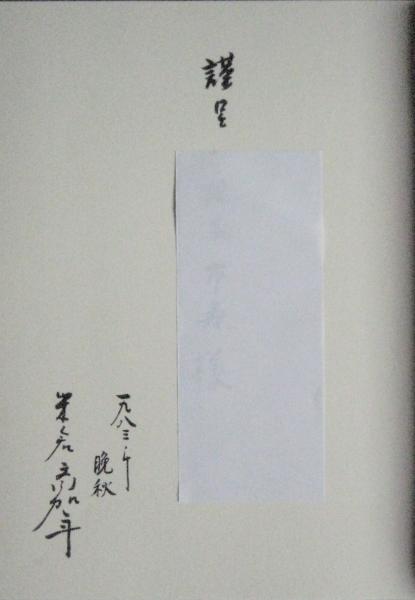 謹呈
様
一九八三年
晩秋
米倉斉加年